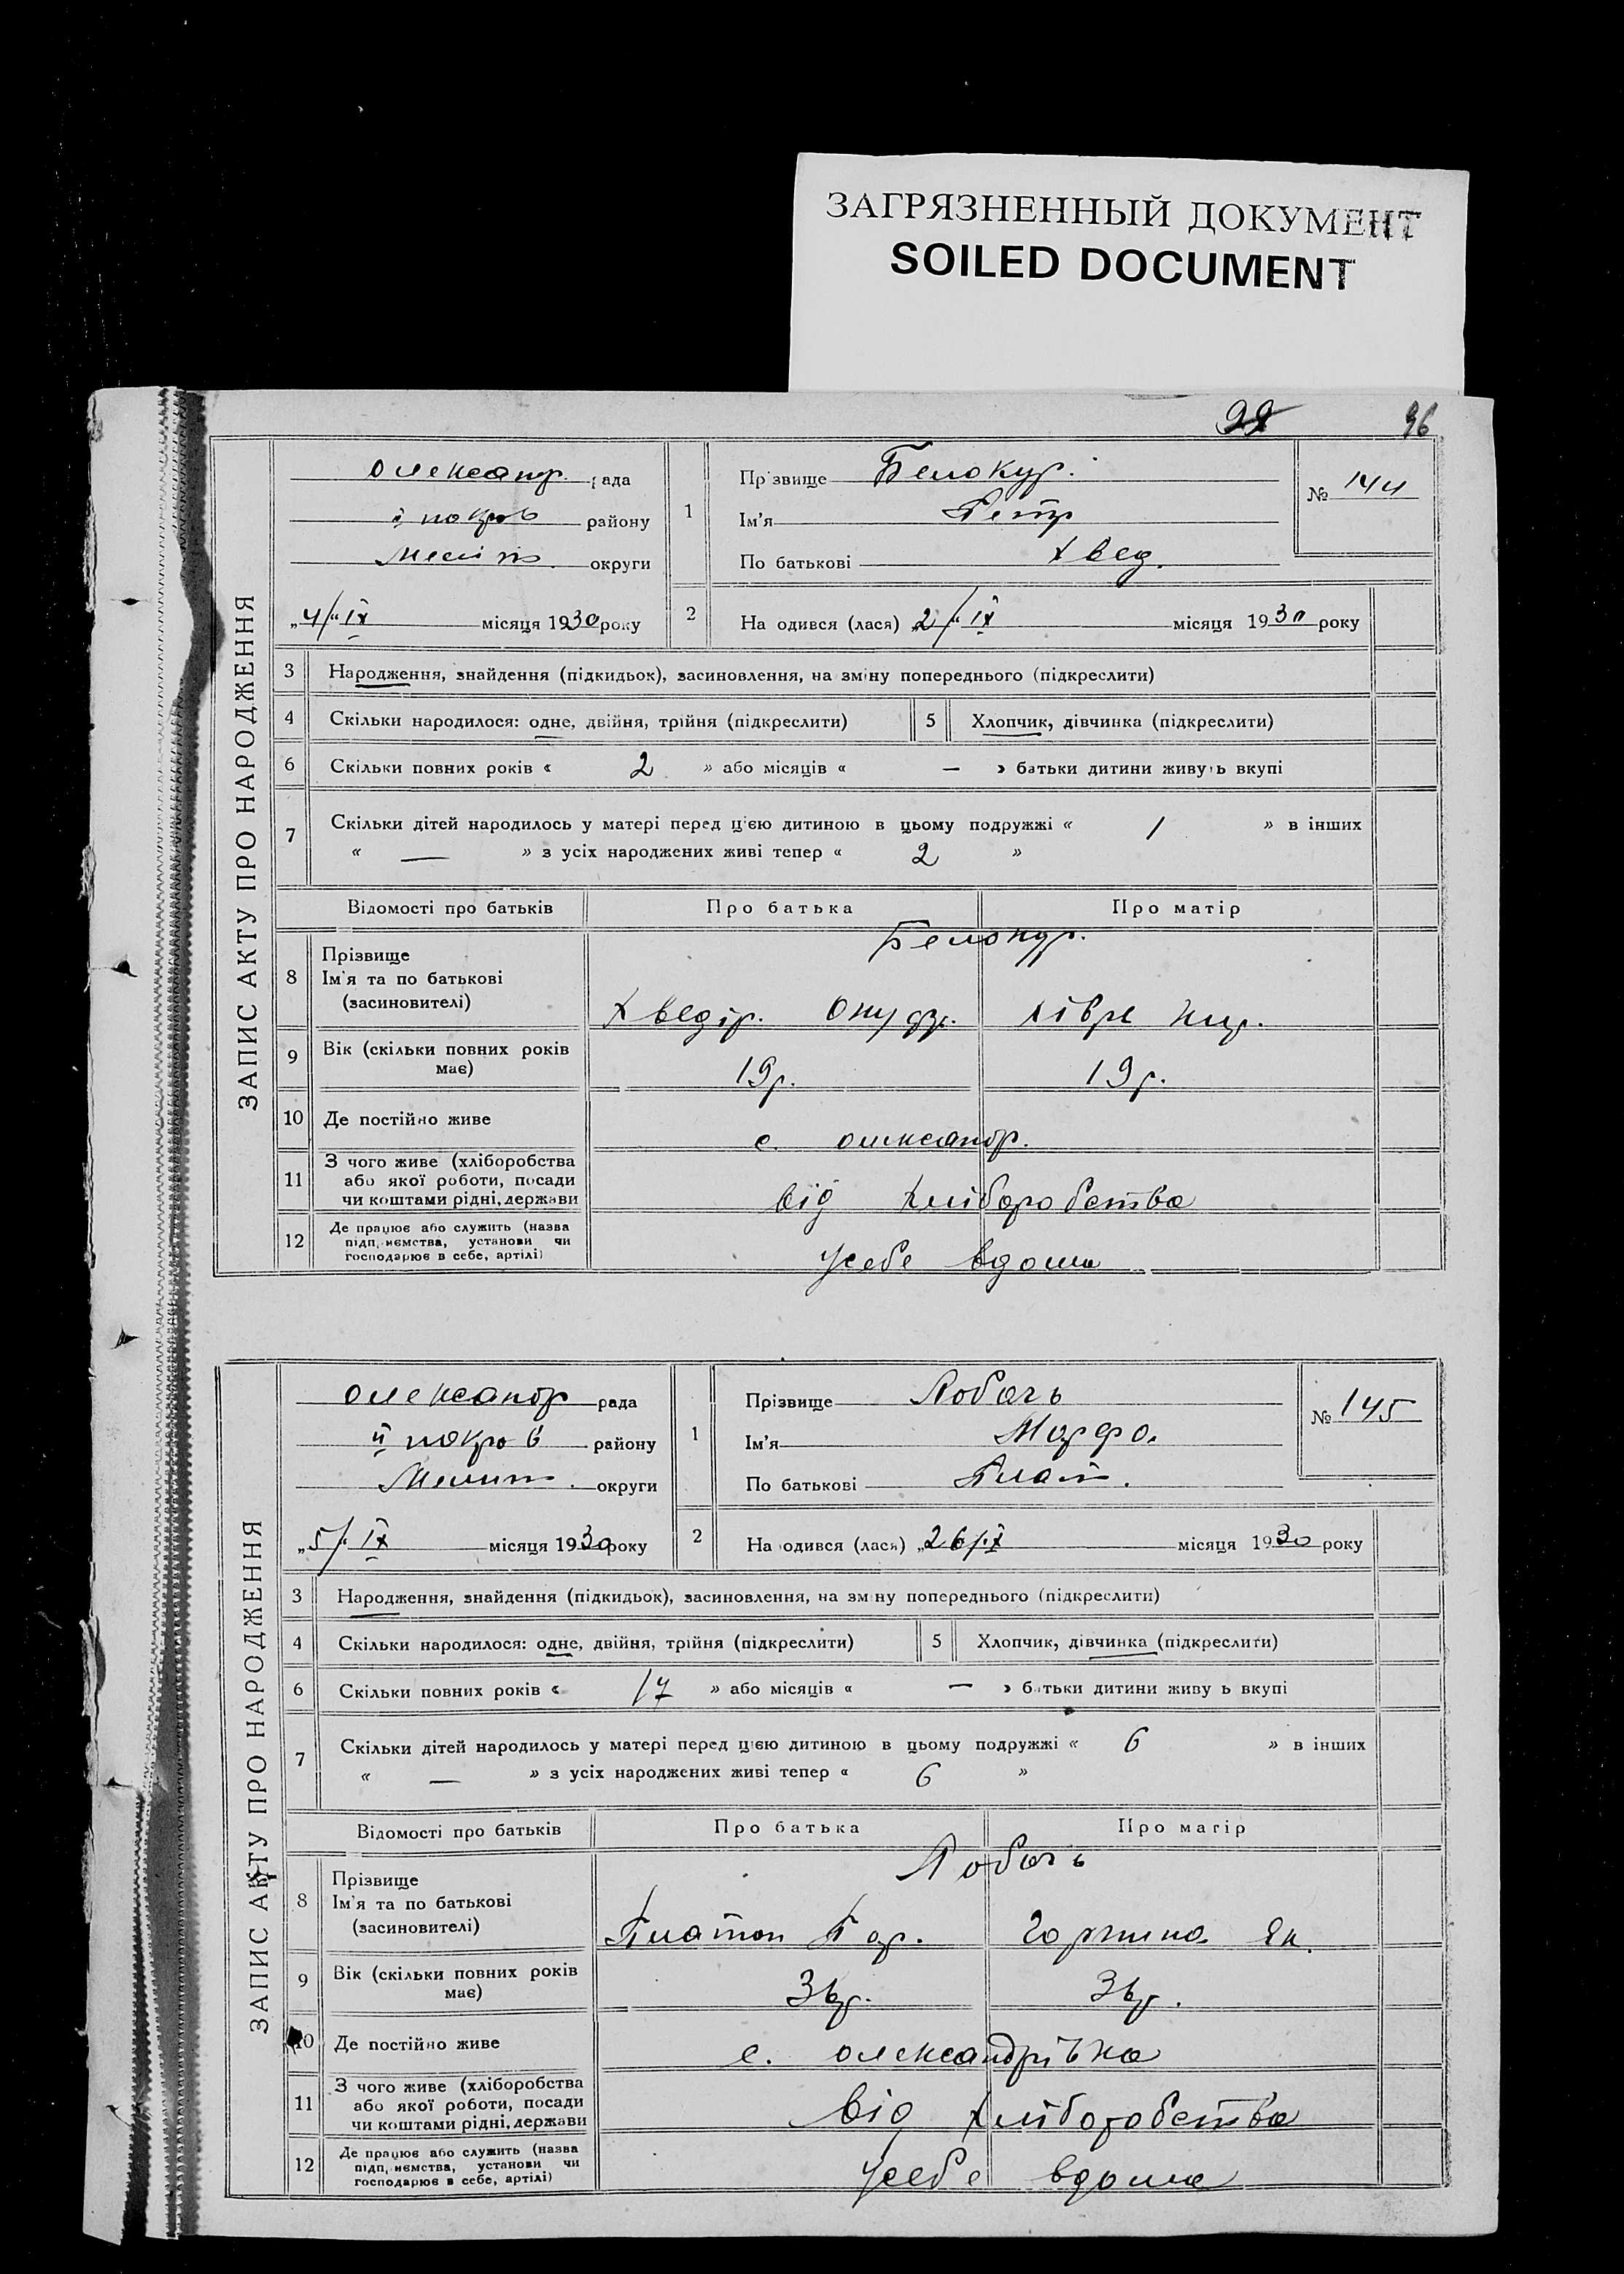 ЗАГРЯЗНЕННЫЙ ДОКУМЕНТ
SOILED DOCUMENT
99 96
ЗАПИС АКТУ ПРО НАРОДЖЕННЯ
Олександр. рада
ІІ покров району
Меліт. округи
„4/“ ІХ місяця 1930 року
1
Прізвище Белокур.
Ім'я Петр
По батькові Хвед.
№ 144
2
На одився (лася) „2/“ ІХ місяця 1930 року
3 Народження, знайдення (підкидьок), засиновлення, на зміну попереднього (підкреслити)
4 Скільки народилося: одне, двійня, трійня (підкреслити) 5 Хлопчик, дівчинка (підкреслити)
6 Скільки повних років « 2 » або місяців « — » батьки дитини живуть вкупі
7 Скільки дітей народилось у матері перед цією дитиною в цьому подружжі « 1 » в інших
« — » з усіх народжених живі тепер « 2 »
Відомості про батьків Про батька Про матір
8 Прізвище Белокур.
Ім'я та по батькові
(засиновителі) Хведір.
9 Вік (скільки повних років
має) 19 р. 19 р.
10 Де постійно живе с. олександр.
11 З чого живе (хліборобства
або якої роботи, посади
чи коштами рідні, держави від хліборобства
12 Де працює або служить (назва
підп,иємства, установи чи
господарює в себе, артілі) усебе вдома
ЗАПИС АКТУ ПРО НАРОДЖЕННЯ
Олександр рада
ІІ покров району
Мелит. округи
„5/“ ІХ місяця 1930 року
1
Прізвище Лобачь
Ім'я Марфа
По батькові Плат.
№ 145
2
На одився (лася) „26/ІХ місяця 1930 року
3 Народження, знайдення (підкидьок), засиновлення, на зміну попереднього (підкреслити)
4 Скільки народилося: одне, двійня, трійня (підкреслити) 5 Хлопчик, дівчинка (підкреслити)
6 Скільки повних років « 17 » або місяців « — » батьки дитини живу ь вкупі
7 Скільки дітей народилось у матері перед цією дитиною в цьому подружжі « 6 » в інших
« — » з усіх народжених живі тепер « 6 »
Відомості про батьків Про батька Про матір
8 Прізвище Лобачь
Ім'я та по батькові
(засиновителі) Платон Горпина Як.
9 Вік (скільки повних років
має) 36 р. 36 р.
10 Де постійно живе с. олександрівка
11 З чого живе (хліборобства
або якої роботи, посади
чи коштами рідні, держави від хліборобства
12 Де працює або служить (назва
підп,иємства, установи чи
господарює в себе, артілі) усебе вдома